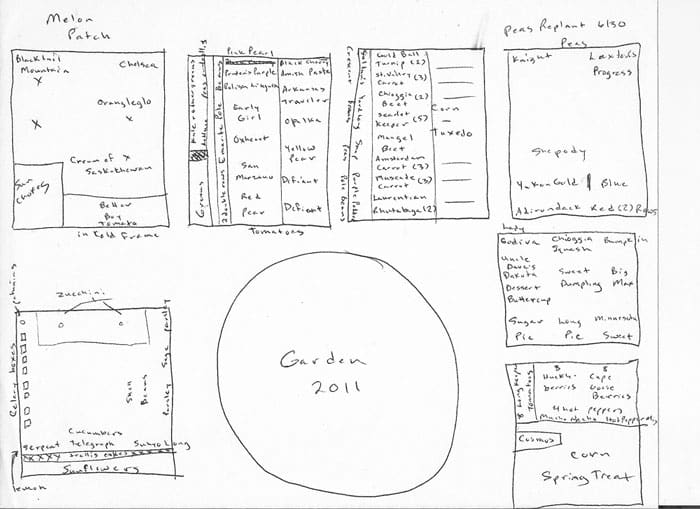 Melon
Patch
Blacktail
Mountain
Chelsea
x
Orangeglo
x
Cream of x
Saskatchewan
Sun
chokes
Better
Boy
Tomato
in Cold Frame
Pink Pearl
Black Cherry
Pruden's Purple
Amish Paste
Arkansas
Traveler
Early
Girl
Opalka
Oxheart
Yellow
Pear
San
Marzano
Defiant
Red
Pear
Defiant
Greens
2 double rows Emerite Pole Beans
Tomatoes
Gold Ball
Turnip (2)
St. Valery (3)
Carrot
Chioggia (2)
Beet
Scarlet
Keeper (5)
Mangel
Beet
Amsterdam
Carrot (3)
Muscade (3)
Carrot
Laurentian
Rhutabaga (2)
Corn
Tuxedo
Peas Replant 6/30
Peas
Knight
Laxton's
Progress
Shepody
Yukon Gold
Blue
Adirondack Red (2) Rows
Lady
Godiva
Chioggia
Squash
Bumpkin
Uncle
Dave's
Dakota
Dessert
Buttercup
Sweet
Dumpling
Big
Max
Sugar
Pie
Long
Pie
Minnesota
Sweet
Zucchini
Celery boxes
Parsley Sage Parsley
Beans
Cucumbers
Serpent Telegraph Suhyo Long
Sunflowers
lemon
Garden
2011
8
Huckle-
berries
8
Cape
Goose
Berries
Tomatoes
4 hot Peppers
Cosmos
Corn
Spring Treat